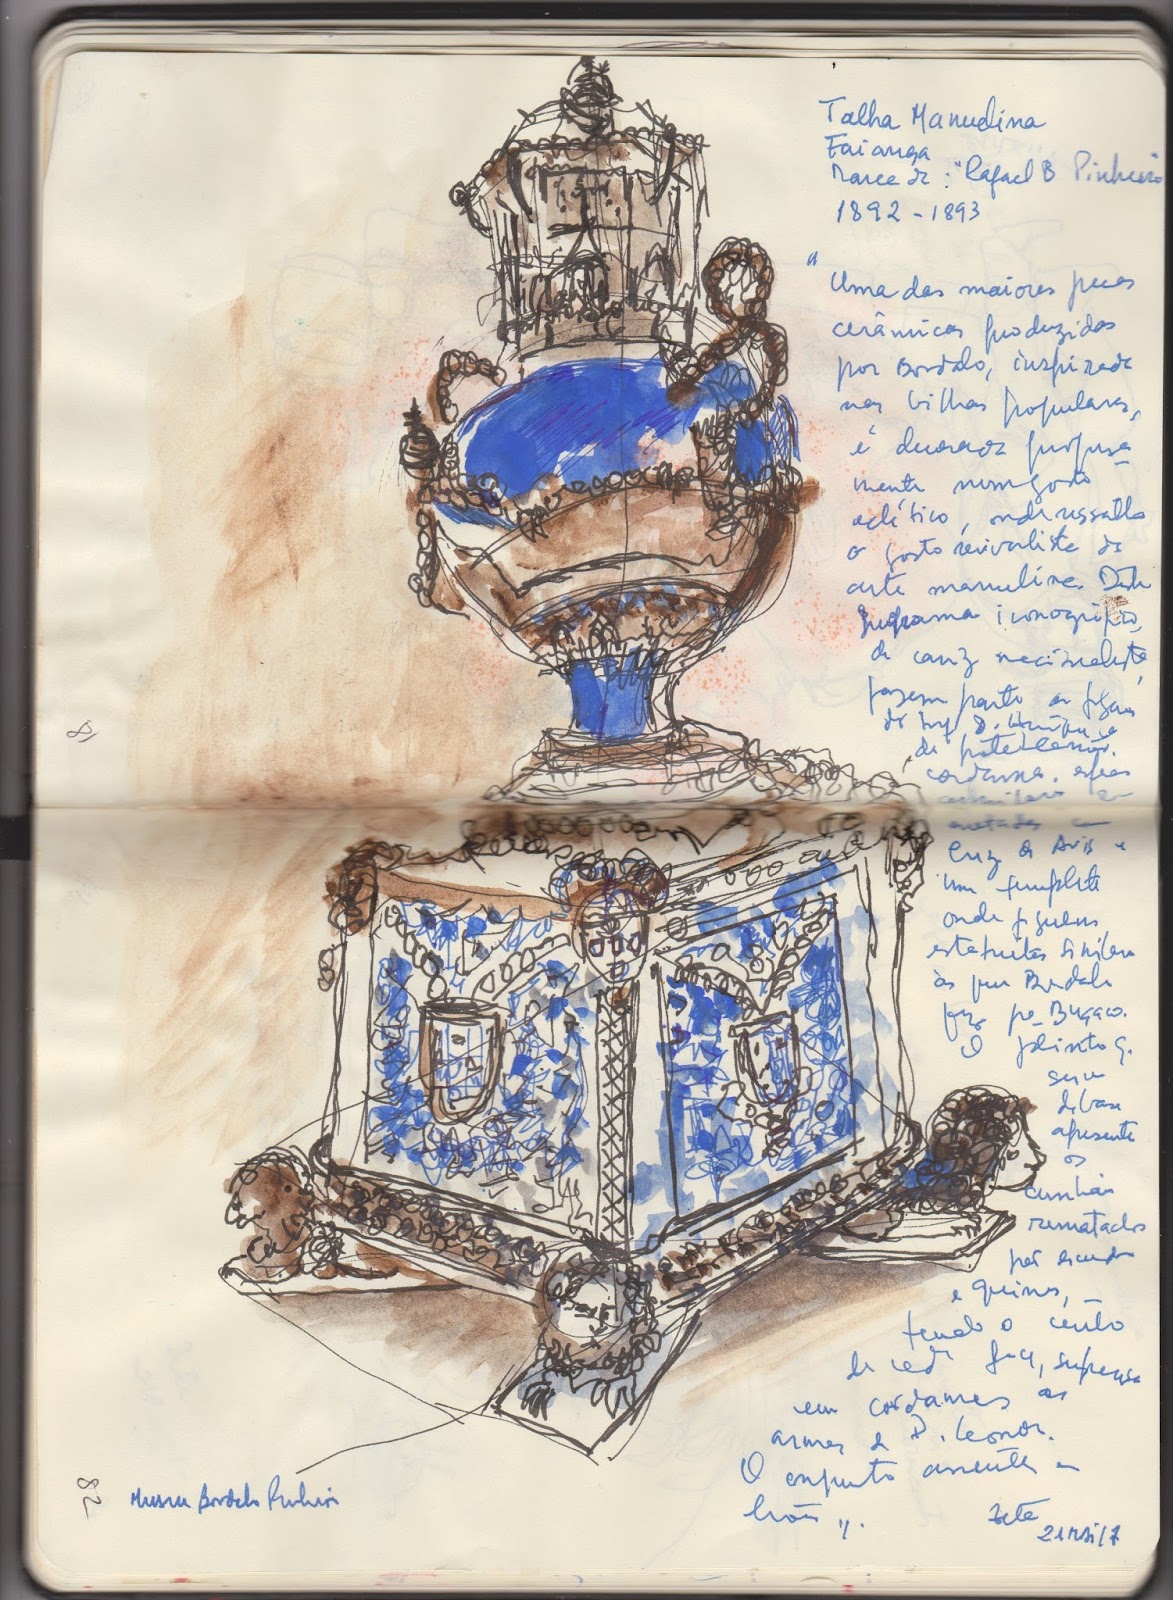 Talha Manuelina
Faiança
Marca de: "Rafael B Pinheiro
1892 - 1893
"Uma das maiores peças
cerâmicas produzidas
por Bordalo, inspirada
nas bilhas populares,
é decorada profusa
mente num gosto
eclético, onde ressalta
o gosto revivalista da
arte manuelina. Deste
programa iconográfico,
de cariz nacionalista,
fazem parte as figuras
do Inf. D. Henrique e
de
cordames, esferas
armilares
Cruz de Avis e
um templete
onde figuram
estatuetas similares
às que Bordalo
fez pª Buçaco.
O plinto q.
serve
de base
apresenta
os
cunhais
rematados
por escudos
e quinas,
tendo o centro
de cada face, suspensa
em cordames as
armas de D. Leonor.
O conjunto assenta em
leões".
81
82
Museu Bordalo Pinheiro